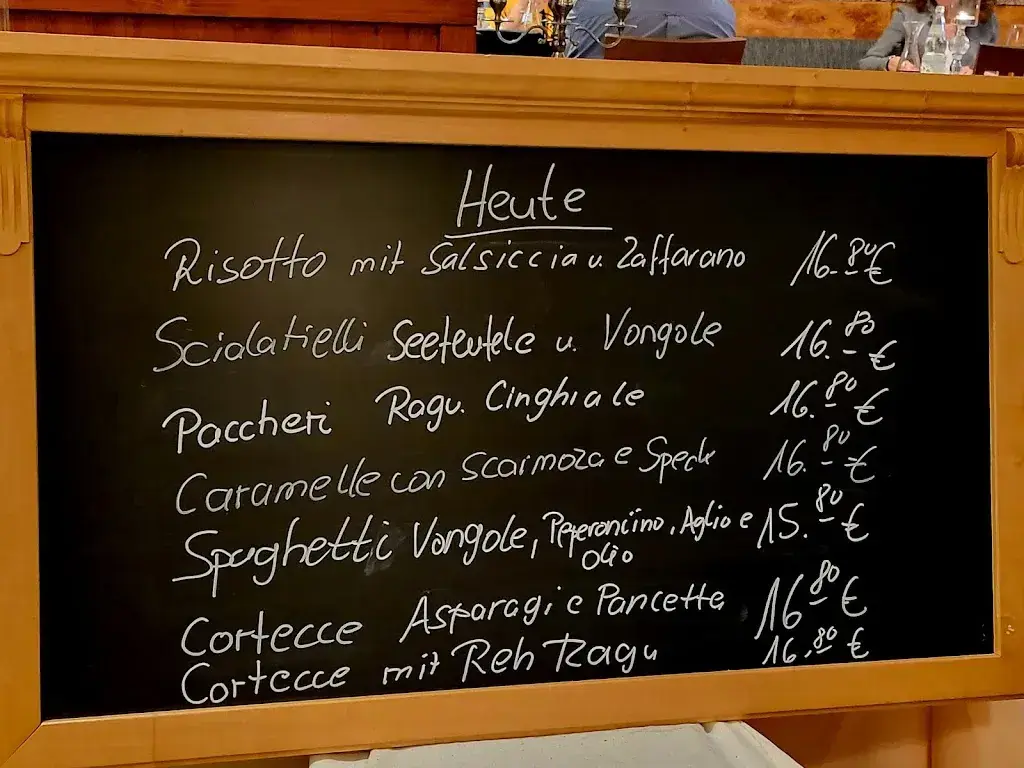 Heute
Risotto mit Salsiccia u. Zaffarano 16.80€
Scialatielli Seeteufele u. Vongole 16.80 €
Paccheri Ragu. Cinghiale 16.80 €
Caramelle con Scarmoza e Speck 16.80 €
Spaghetti Vongole, Peperoncino, Aglio e 15.80 €
olio
Cortecce Asparagi e Pancetta 16.80 €
Cortecce mit Reh Ragu 16.80 €